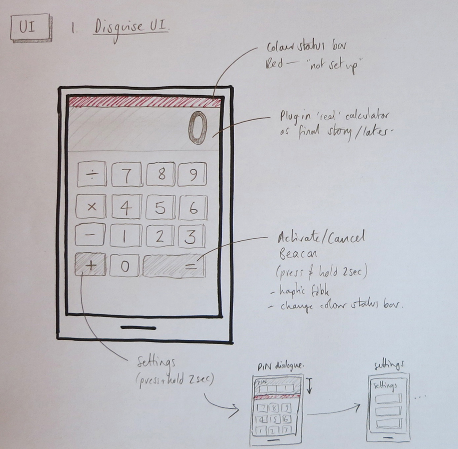 UI
1. Disguise UI
Colour status bar
Red — "not set up"
0
Plug in 'real' calculator
as final story/later.
÷ 7 8 9
× 4 5 6
- 1 2 3
+ 0 =
Activate/Cancel
Beacon
(press & hold 2sec)
- haptic fdbk
- change colour status bar.
Settings
(press+hold 2sec)
PiN dialogue.
settings
PIN
1 2 3
settings
...